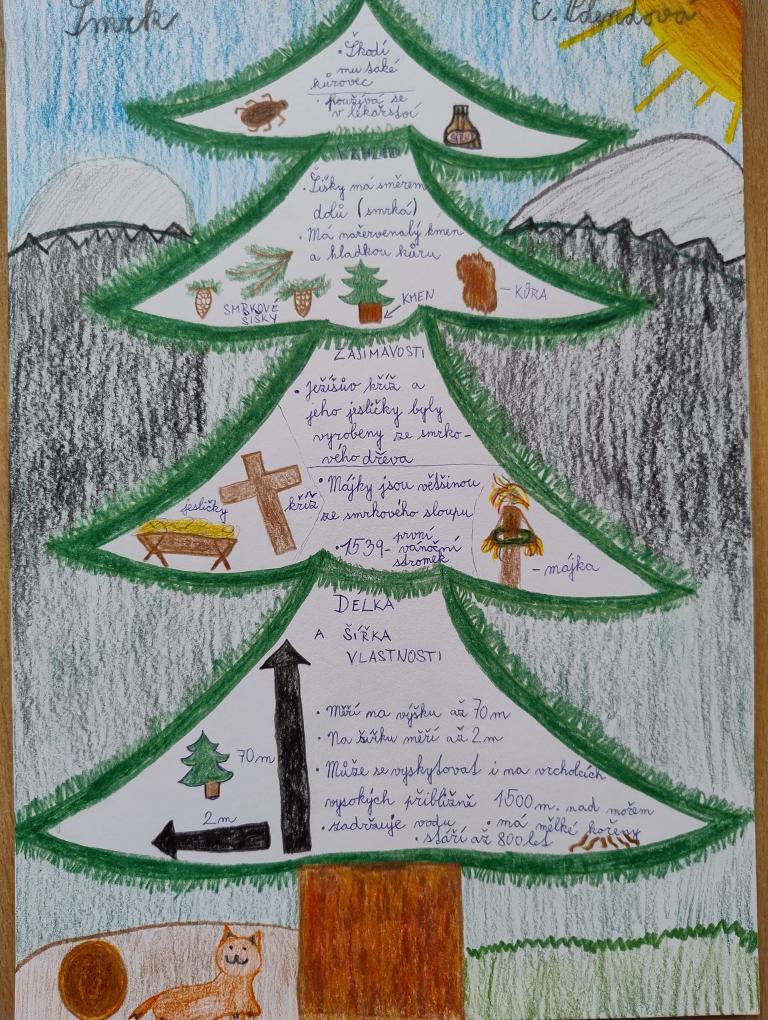 Smrk
• Škodí
mu také
kůrovec
• používá se
v lékařství
VZHLED
• Šišky má směrem
dolů (smrká)
• Má načervenalý kmen
a hladkou kůru
SMRKOVÉ
ŠIŠKY
KMEN
– KŮRA
ZAJÍMAVOSTI
• Ježíšův kříž a
jeho jesličky byly
vyrobeny ze smrko-
vého dřeva
jesličky
kříž
• Májky jsou většinou
ze smrkového sloupu
• 1539- první
vánoční
stromek
– májka
DÉLKA
A ŠÍŘKA
VLASTNOSTI
70m
2m
• Měří na výšku až 70m
• Na šířku měří až 2m
• Může se vyskytovat i na vrcholcích
vysokých přibližně 1500m. nad mořem
• zadržuje vodu • má mělké kořeny
• stáří až 800 let